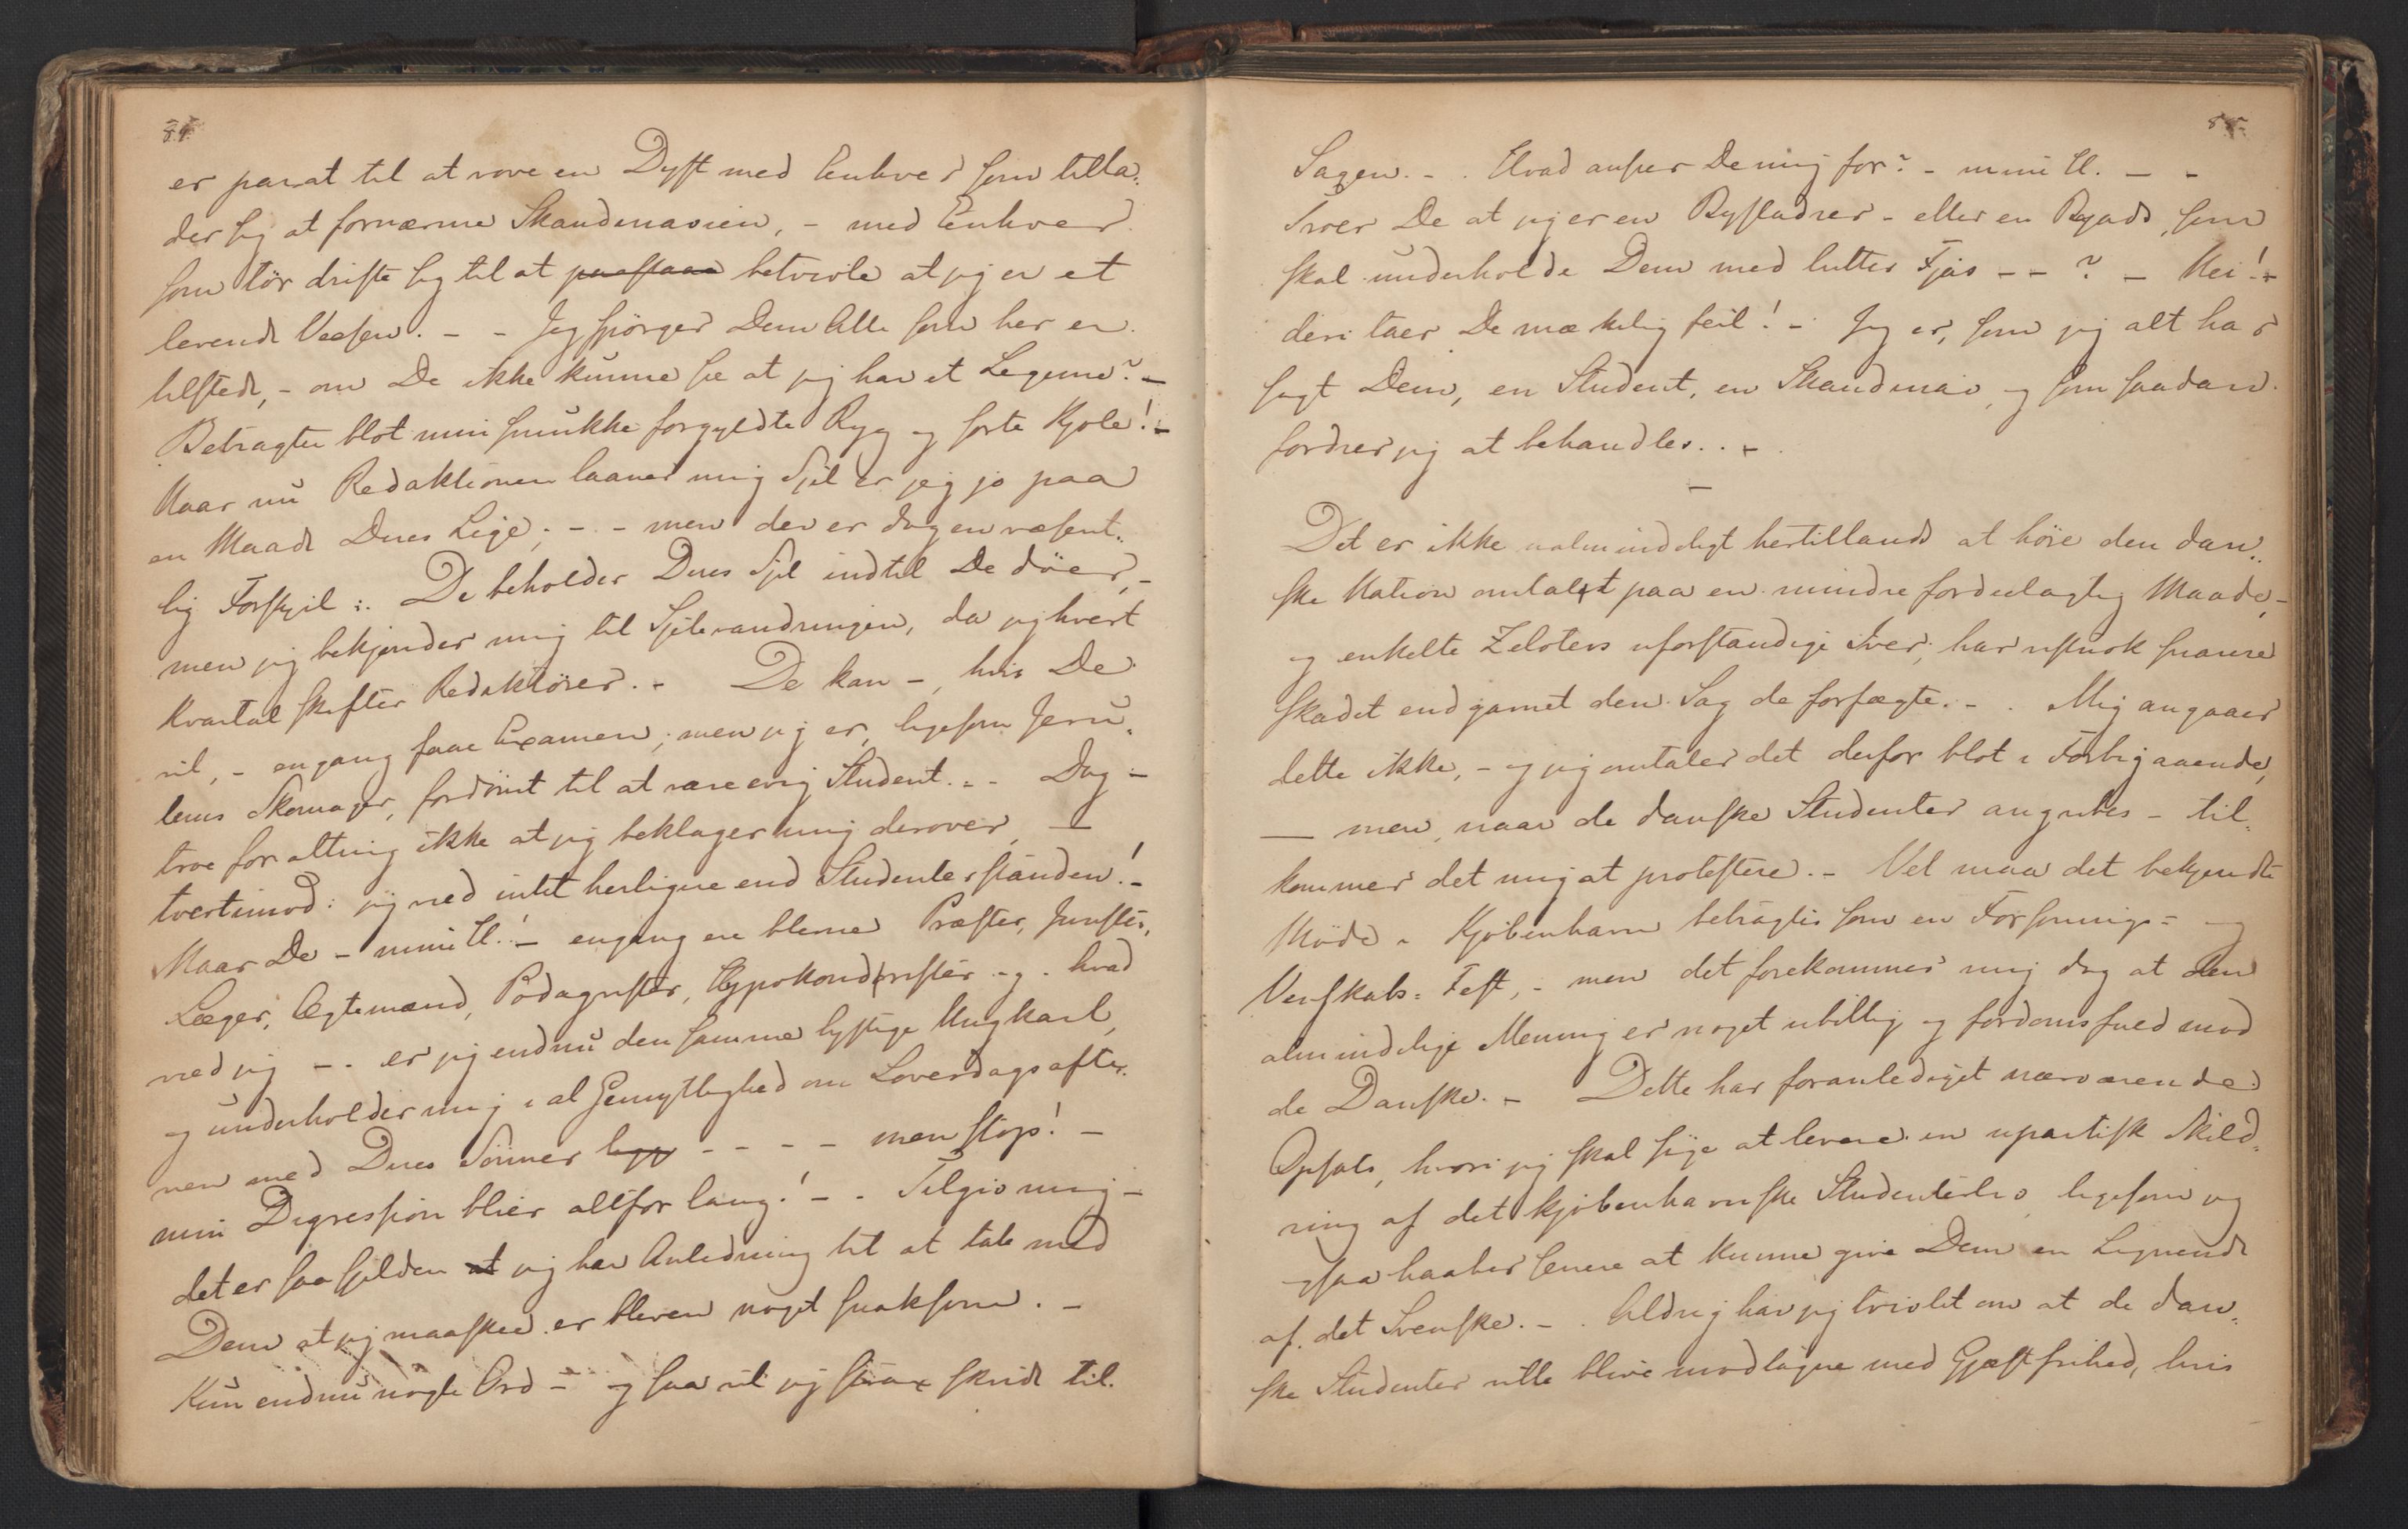 84.
er parat til at vove en Dyst med Enhver som tilla-
der sig at fornærme Skandinavien, - med Enhver
som tör driste sig til at paastaae betvivle at jeg er et
levende Væsen. - - Jeg spörger Dem Alle som her er
tilstede, - om De ikke kunne se at jeg har et Legeme? -
Betragter blot min smukke forgyldte Ryg og sorte Kjole! -
Naar nu Redaktionen laaner mig Sjel er jeg jo paa
en Maade Deres Lige; - - men der er dog en væsent-
lig Forskjel :. De beholder Deres Sjel indtil De döer, -
men jeg bekjender mig til Sjelevandringen, da jeg hvert
Kvartal skifter Redaktörer. - De kan -, hvis De
vil, - engang faae Examen; men jeg er, ligesom Jeru-
lems Skomager, fordömt til at være evig Student. - - Dog -
troe for alting ikke at jeg beklager mig derover, -
tvertimod: jeg ved intet herligere end Studenterstanden! -
Naar De - mine H.! - engang ere blevne Præster, Jurister,
Læger, Ægtemænd, Podagrister, Hypokondrister og - hvad
ved jeg - - er jeg endnu den samme lystige Ungkarl,
og underholder mig i al Gemytlighed om Löverdagsafte-
nen med Deres Sönner - - - - men stop! -
min Digression blier altfor lang! - - Tilgiv mig -
det er saa sjelden at jeg har Anledning til at tale med
Dem at jeg maaskee er bleven noget snaksom. -
Kun endnu nogle Ord - og saa vil jeg strax skride til
85.
Sagen. - . Hvad anseer De mig for? - mine H. - -
Troer De at jeg er en Bysladrer - eller en Bajads, som
skal underholde Dem med lutter Fjas - - ? - Nei! -
deri taer De mæ kelig feil! - Jeg er, som jeg alt har
sagt Dem, en Student, en Skandinav, og som saadan
fordrer jeg at behandles. . -
-
Det er ikke ualmindeligt hertillands at höre den dan-
ske Nation omtalt paa en mindre fordeelagtig Maade, -
og enkelte Zeloters uforstandige Iver, har vistnok snarere
skadet end gavnet den Sag de forfægte. - . Mig angaaer
dette ikke, - og jeg omtaler det derfor blot i Forbigaaende,
- men, naar de danske Studenter angribes - til-
kommer det mig at protestere. - Vel maa det bekjendte
Möde i Kjöbenhavn betragtes som en Forsonings- og
Venskabs- Fest, - men det forekommer mig dog at den
almindelige Mening er noget ubillig og fordomsfuld mod
de Danske. - Dette har foranlediget nærværende
Opsats, hvori jeg skal söge at levere en upartisk Skild-
ring af det kjöbenhavnske Studenterliv, ligesom jeg
ogsaa haaber senere at kunne give Dem en Lignende
af det Svenske. - . Aldrig har jeg tvivlet om at de dan-
ske Studenter ville blive modtagne med Gjæstfrihed, hvis